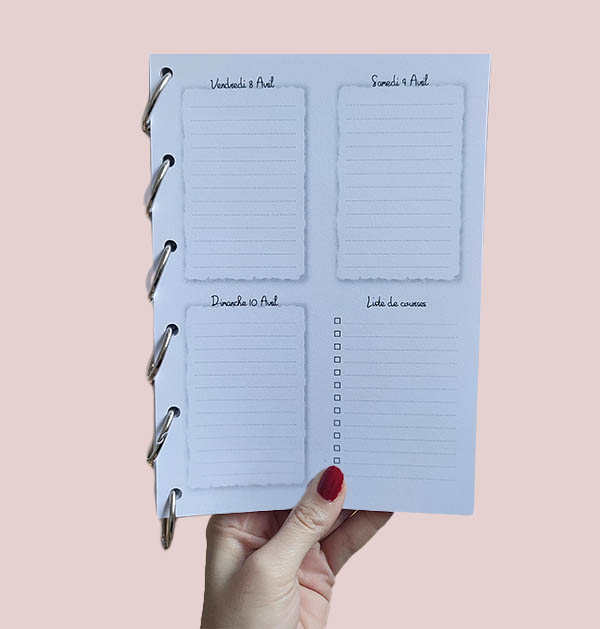 Vendredi 8 Avril
Samedi 9 Avril
Dimanche 10 Avril
Liste de courses